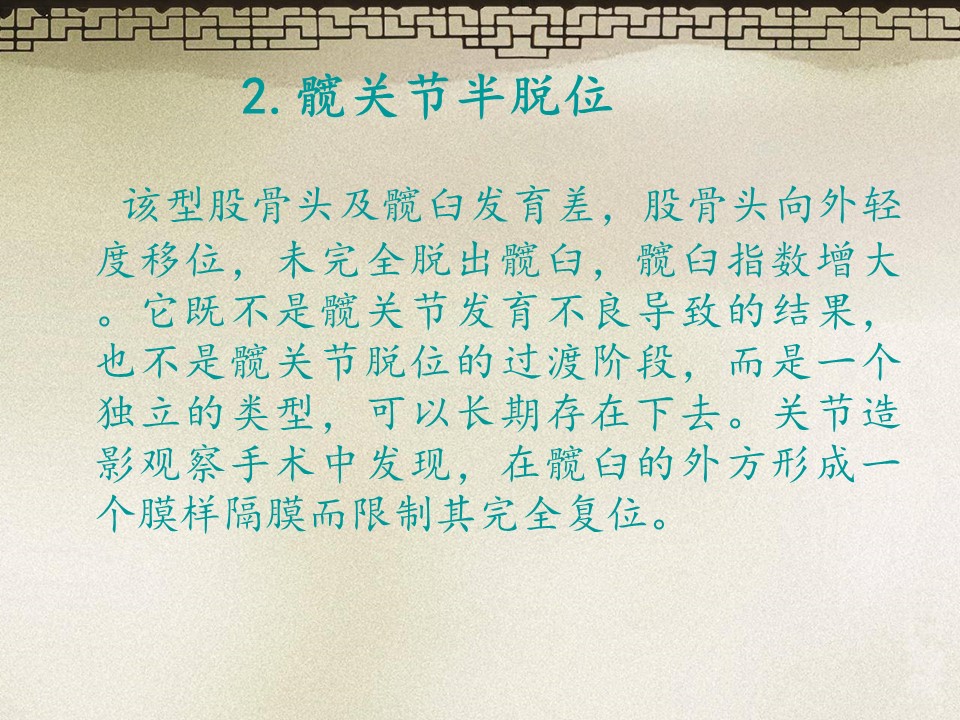 2.髋关节半脱位
该型股骨头及髋臼发育差，股骨头向外轻
度移位，未完全脱出髋臼，髋臼指数增大
。它既不是髋关节发育不良导致的结果，
也不是髋关节脱位的过渡阶段，而是一个
独立的类型，可以长期存在下去。关节造
影观察手术中发现，在髋臼的外方形成一
个膜样隔膜而限制其完全复位。